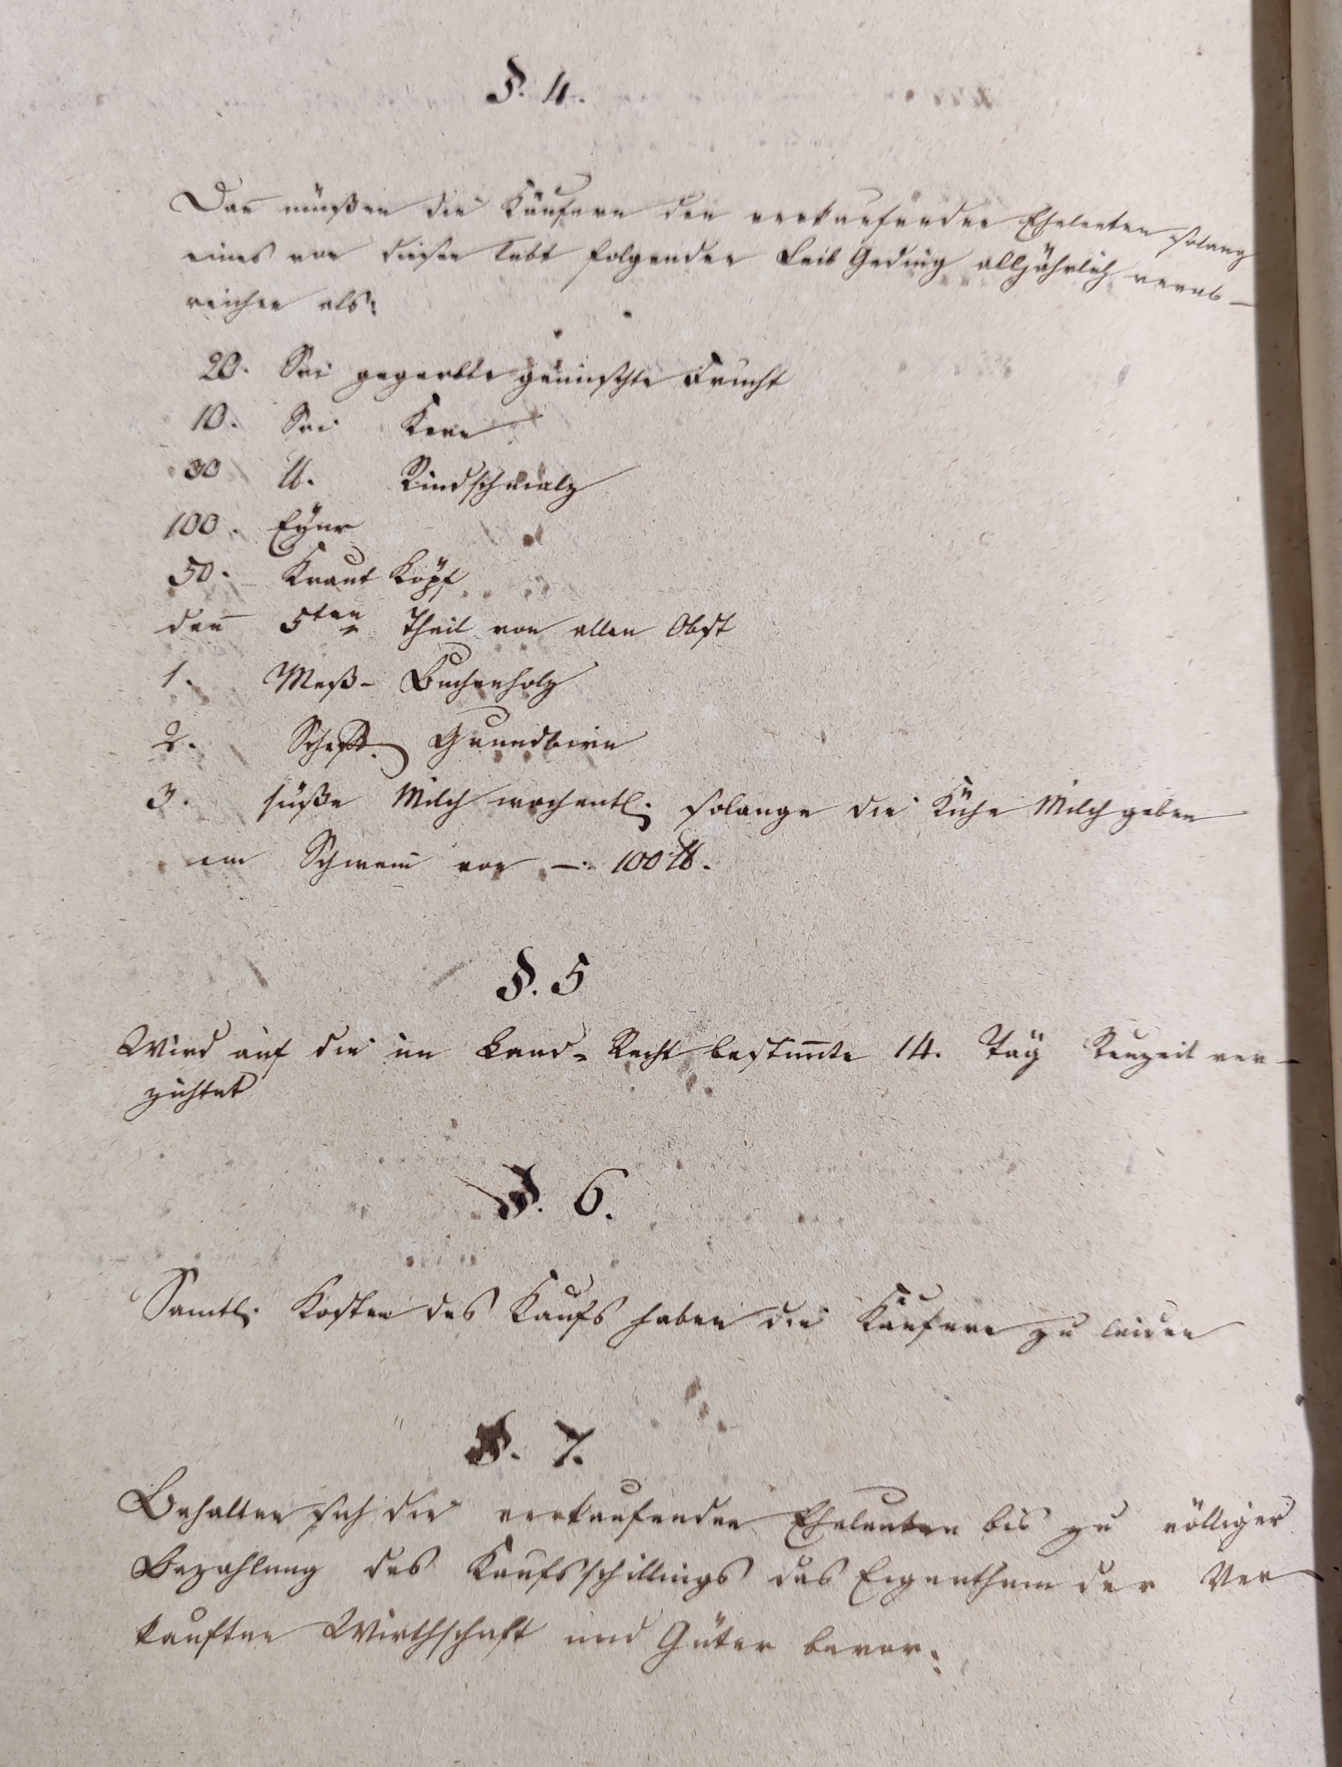 §. 4.
Dan̄ müßen die Käufere den verkaufenden Eheleuten solang
eines von diesen lebt folgendes Leib Geding alljährlich verab-
reichen als:
20. Sri gegerbte gemischte Frucht
10. Sri Kern
30 ℔. Rindschmalz
100. Eyer
50. Kraut Köpf
den 5ten Theil von allen Obst
1. Meß- Buchenholz
2. Scheffl. Grundbirn
3. süße Milch wochentl. solange die Kühe Milch geben
ein Schwein von -. 100 ℔.
§. 5
Wird auf die im Land- Recht bestim̄te 14. Täg Reuzeit ver-
zichtet
§. 6.
Samtl. Kosten des Kaufs haben die Käufere zu leiden
§. 7.
Behalten sich die verkaufenden Eheleuten bis zu völliger
Bezahlung des Kaufsschillings das Eigenthum der Ver
kauften Wirthschaft und Güter bevor.